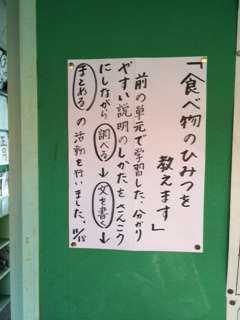 「食べ物のひみつを
教えます」
前の単元で学習した、分かり
やすい説明のしかたをさんこう
にしながら 調べる → 文を書く →
まとめる の活動を行いました。11/18